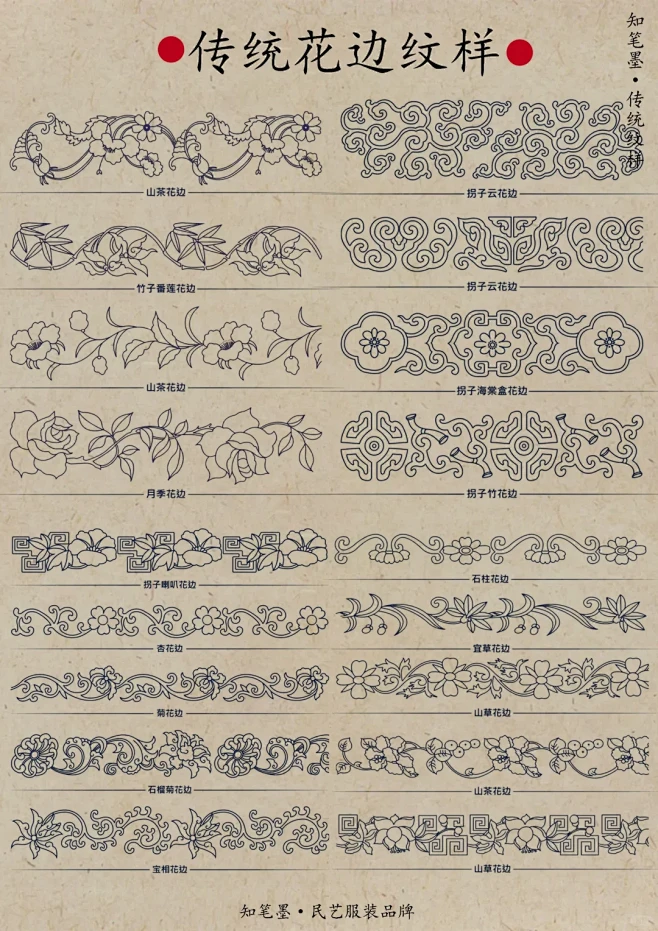 传统花边纹样
知笔墨·传统纹样
山茶花边
拐子云花边
竹子番莲花边
拐子云花边
山茶花边
拐子海棠盒花边
月季花边
拐子竹花边
拐子喇叭花边
石柱花边
杏花边
宜草花边
菊花边
山草花边
石榴菊花边
山茶花边
宝相花边
山草花边
知笔墨·民艺服装品牌